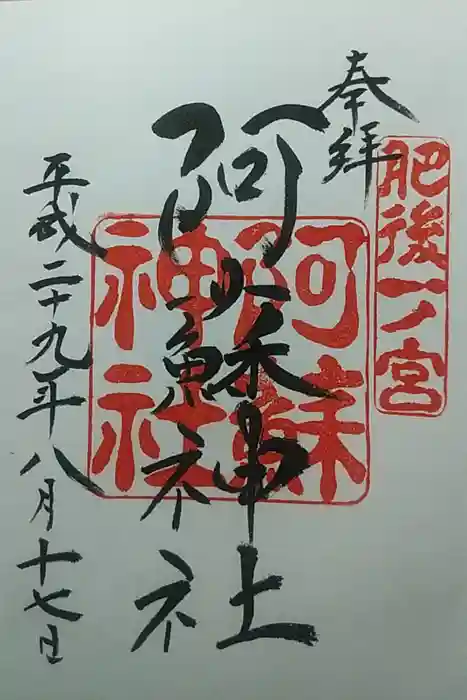 奉拝
肥後一ノ宮
阿蘇神社
阿蘇
神社
平成二十九年八月十七日